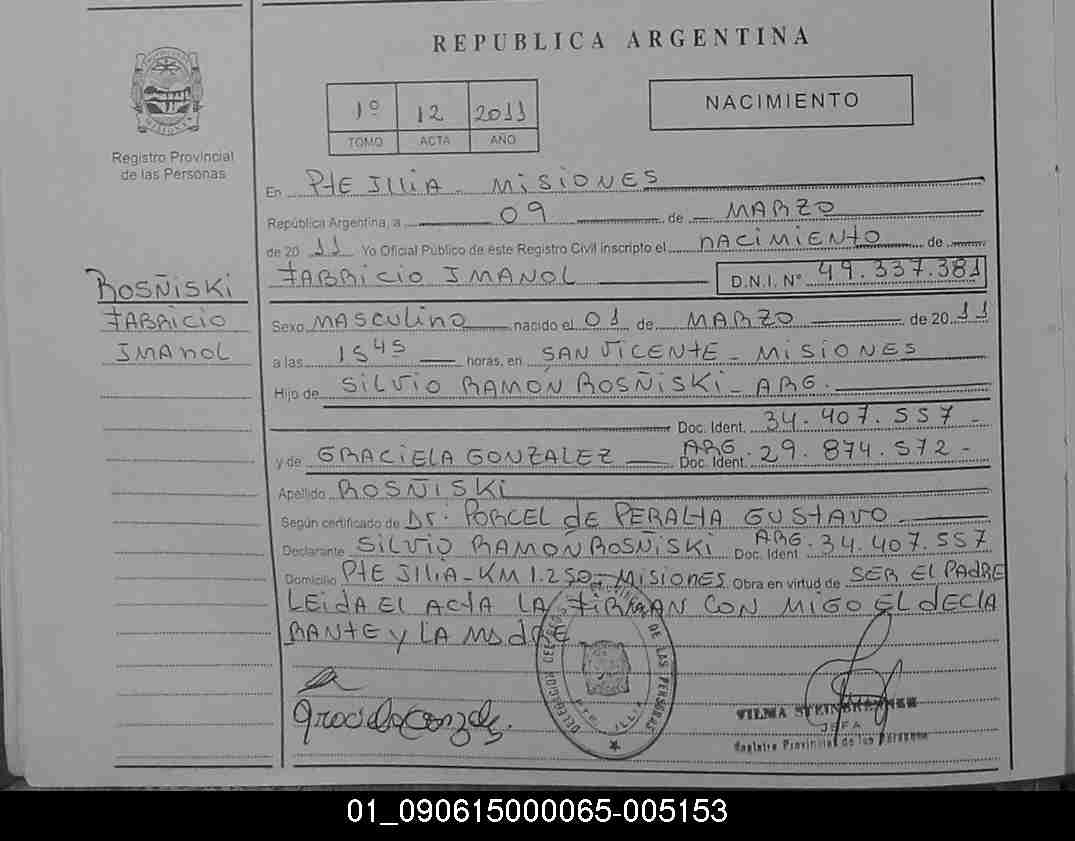 REPUBLICA ARGENTINA
1º 12 2011
TOMO ACTA AÑO
NACIMIENTO
MISIONES
Registro Provincial
de las Personas
En PtE ILLIA - MISIONES
República Argentina, a 09 de MARZO
de 2011 Yo Oficial Público de este Registro Civil inscripto el NACIMIENTO de
FABRICIO IMANOL D.N.I. Nº 49.337.381
ROSÑISKI
FABRICIO
IMANOL
Sexo MASCULINO nacido el 01 de MARZO de 2011
a las 15 45 horas, en SAN VICENTE - MISIONES
Hijo de SILVIO RAMÓN ROSÑISKI - ARG.
Doc. Ident. 34.407.557 -
y de GRACIELA GONZALEZ ARG Doc. Ident. 29.874.572 -
Apellido ROSÑISKI
Según certificado de Dr. PORCEL de PERALTA GUSTAVO
Declarante SILVIO RAMÓN ROSÑISKI Doc. Ident. ARG. 34.407.557
Domicilio PtE ILLIA - KM 1.250 - MISIONES Obra en virtud de SER EL PADRE
LEIDA EL ACTA LA FIRMAN CON MIGO EL DECLA
RANTE y LA MADRE
Graciela Gonzalez.
DE LAS PERSONAS
VILMA STEINBRENNER
JEFA
Registro Provincial de las Personas
01_090615000065-005153